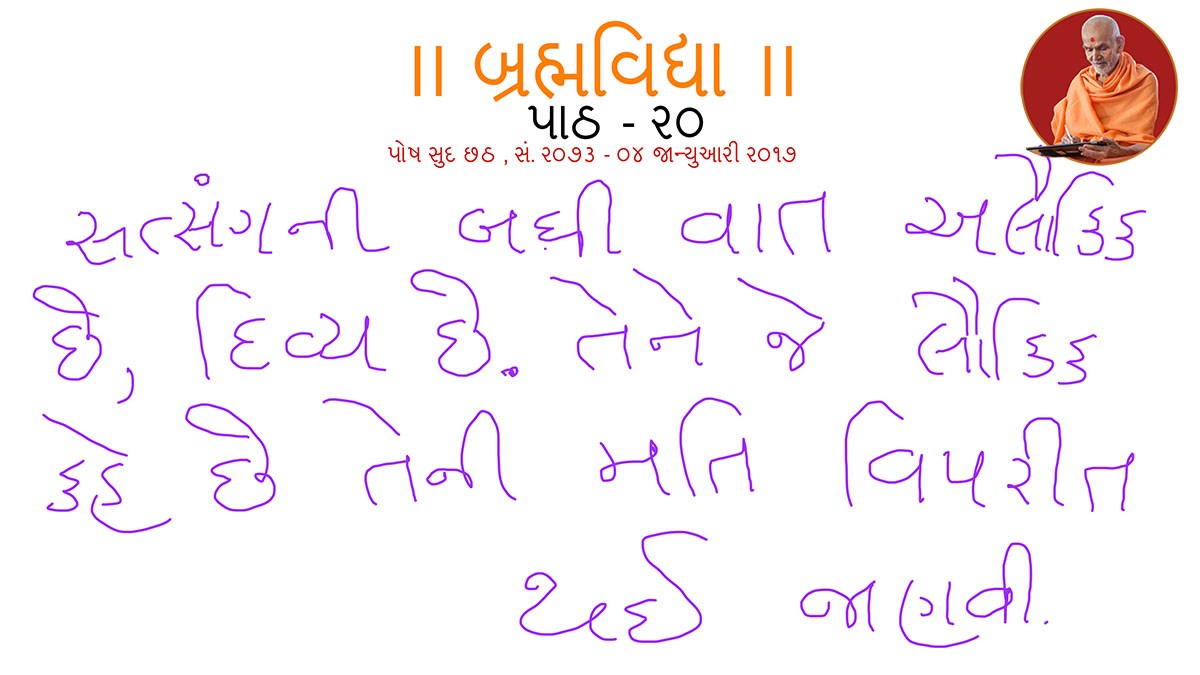 ॥ બ્રહ્મવિદ્યા ॥
પાઠ - ૨૦
પોષ સુદ છઠ , સં. ૨૦૭૩ - ૦૪ જાન્યુઆરી ૨૦૧૭
સત્સંગની બધી વાત અલૌકિક
છે, દિવ્ય છે. તેને જે લૌકિક
કહે છે તેની મતિ વિપરીત
થઈ જાણવી.